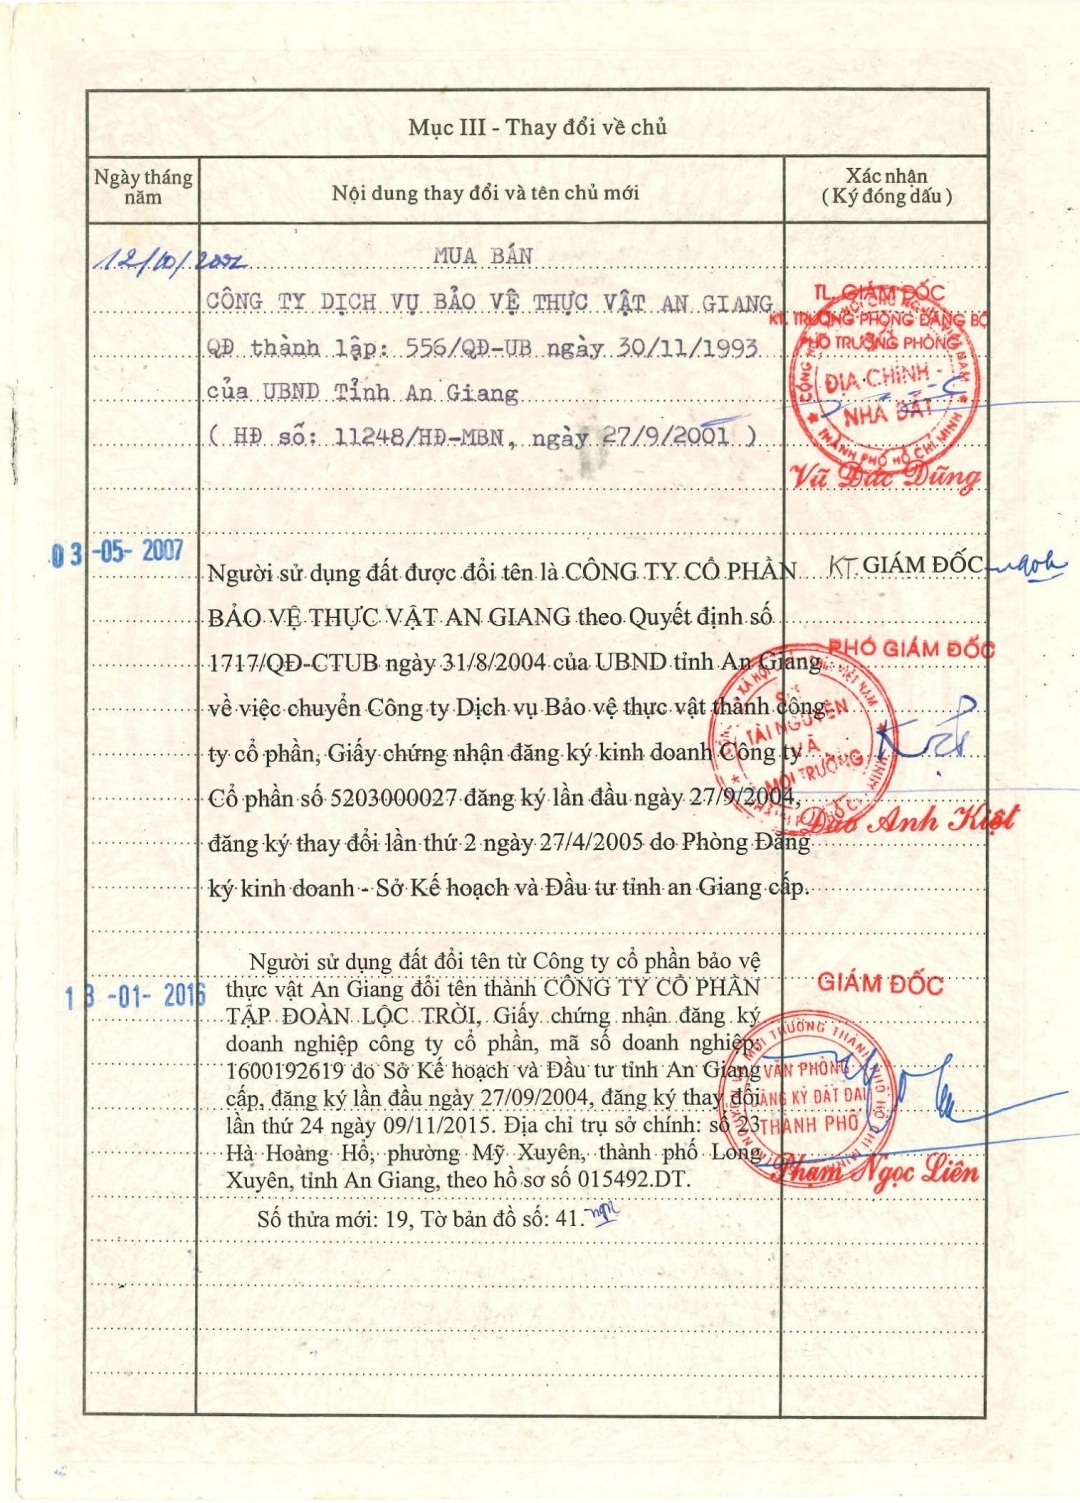 Mục III - Thay đổi về chủ
Ngày tháng năm
Nội dung thay đổi và tên chủ mới
Xác nhận
( Ký đóng dấu )
12/10/2001
MUA BÁN
CÔNG TY DỊCH VỤ BẢO VỆ THỰC VẬT AN GIANG
QĐ thành lập: 556/QĐ-UB ngày 30/11/1993
của UBND Tỉnh An Giang
( HĐ số: 11248/HĐ-MBN, ngày 27/9/2001 )
TL. GIÁM ĐỐC
KT. TRƯỞNG PHÒNG ĐĂNG BỘ
PHÓ TRƯỞNG PHÒNG
ĐỊA CHÍNH -
NHÀ ĐẤT
THÀNH PHỐ HỒ CHÍ MINH
Vũ Đức Dũng
03 -05- 2007
Người sử dụng đất được đổi tên là CÔNG TY CỔ PHẦN
BẢO VỆ THỰC VẬT AN GIANG theo Quyết định số
1717/QĐ-CTUB ngày 31/8/2004 của UBND tỉnh An Giang
về việc chuyển Công ty Dịch vụ Bảo vệ thực vật thành công
ty cổ phần, Giấy chứng nhận đăng ký kinh doanh Công ty
Cổ phần số 5203000027 đăng ký lần đầu ngày 27/9/2004,
đăng ký thay đổi lần thứ 2 ngày 27/4/2005 do Phòng Đăng
ký kinh doanh - Sở Kế hoạch và Đầu tư tỉnh an Giang cấp.
KT. GIÁM ĐỐC
PHÓ GIÁM ĐỐC
SỞ
TÀI NGUYÊN
VÀ
MÔI TRƯỜNG
Đào Anh Kiệt
13 -01- 2016
Người sử dụng đất đổi tên từ Công ty cổ phần bảo vệ
thực vật An Giang đổi tên thành CÔNG TY CỔ PHẦN
TẬP ĐOÀN LỘC TRỜI, Giấy chứng nhận đăng ký
doanh nghiệp công ty cổ phần, mã số doanh nghiệp:
1600192619 do Sở Kế hoạch và Đầu tư tỉnh An Giang
cấp, đăng ký lần đầu ngày 27/09/2004, đăng ký thay đổi
lần thứ 24 ngày 09/11/2015. Địa chỉ trụ sở chính: số 23
Hà Hoàng Hổ, phường Mỹ Xuyên, thành phố Long
Xuyên, tỉnh An Giang, theo hồ sơ số 015492.DT.
Số thửa mới: 19, Tờ bản đồ số: 41.
GIÁM ĐỐC
VĂN PHÒNG
ĐĂNG KÝ ĐẤT ĐAI
THÀNH PHỐ
Phạm Ngọc Liên